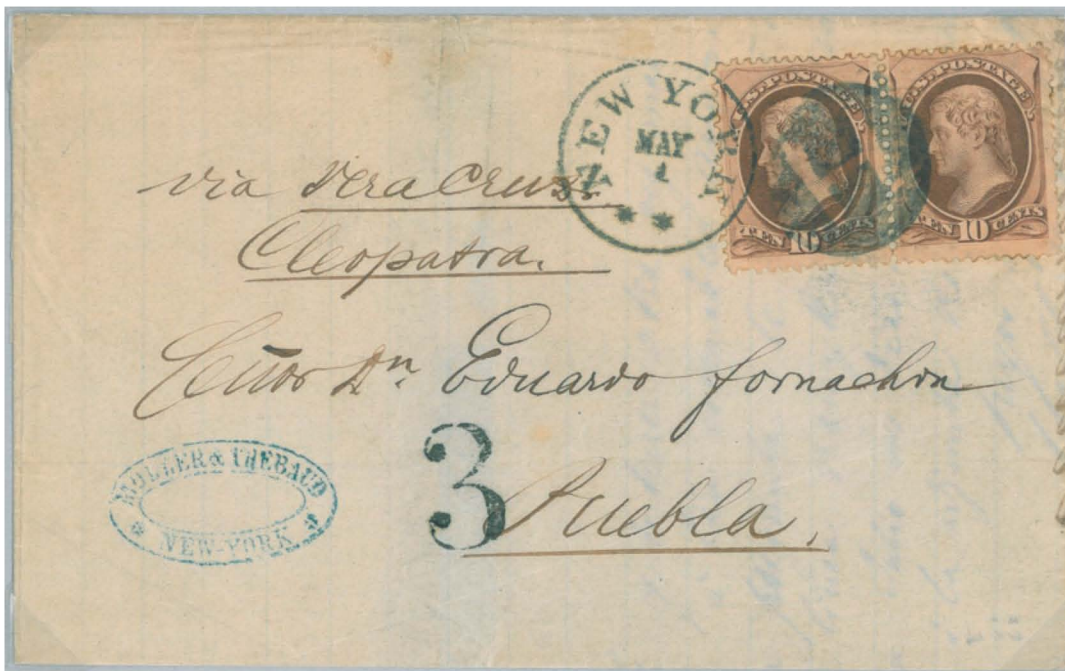 NEW YORK
MAY
1
U.S. POSTAGE
TEN 10 CENTS
U.S. POSTAGE
TEN 10 CENTS
via Vera Cruz
Cleopatra.
Señor Dn Eduardo Fornachon
MOLLER & THEBAUD
NEW-YORK
3
Puebla.